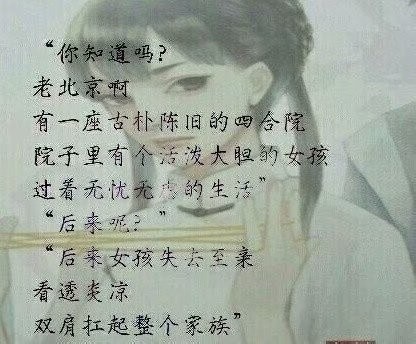 “你知道吗?
老北京啊
有一座古朴陈旧的四合院
院子里有个活泼大胆的女孩
过着无忧无虑的生活”
“后来呢？”
“后来女孩失去至亲
看透炎凉
双肩扛起整个家族”